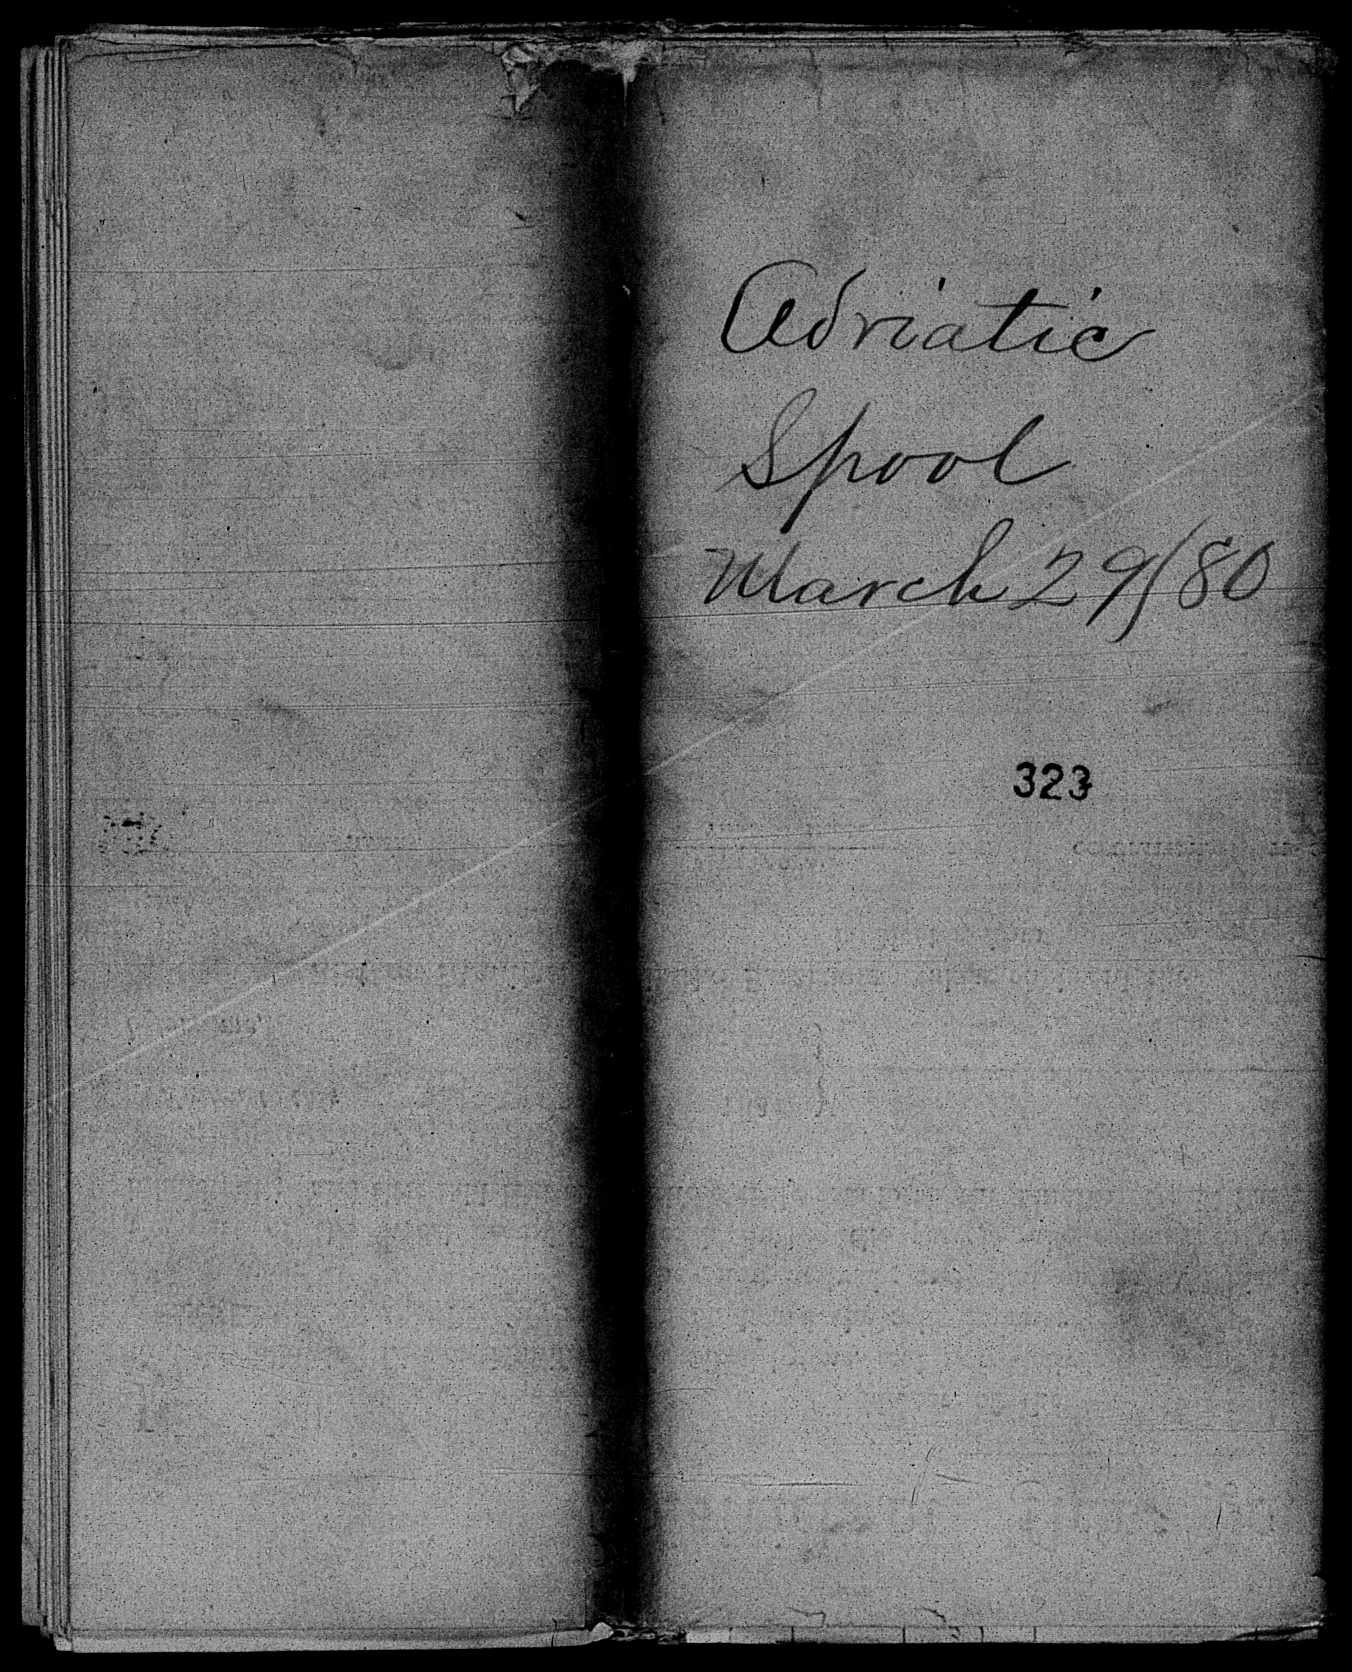 Adriatic
Spool
March 29/80
323